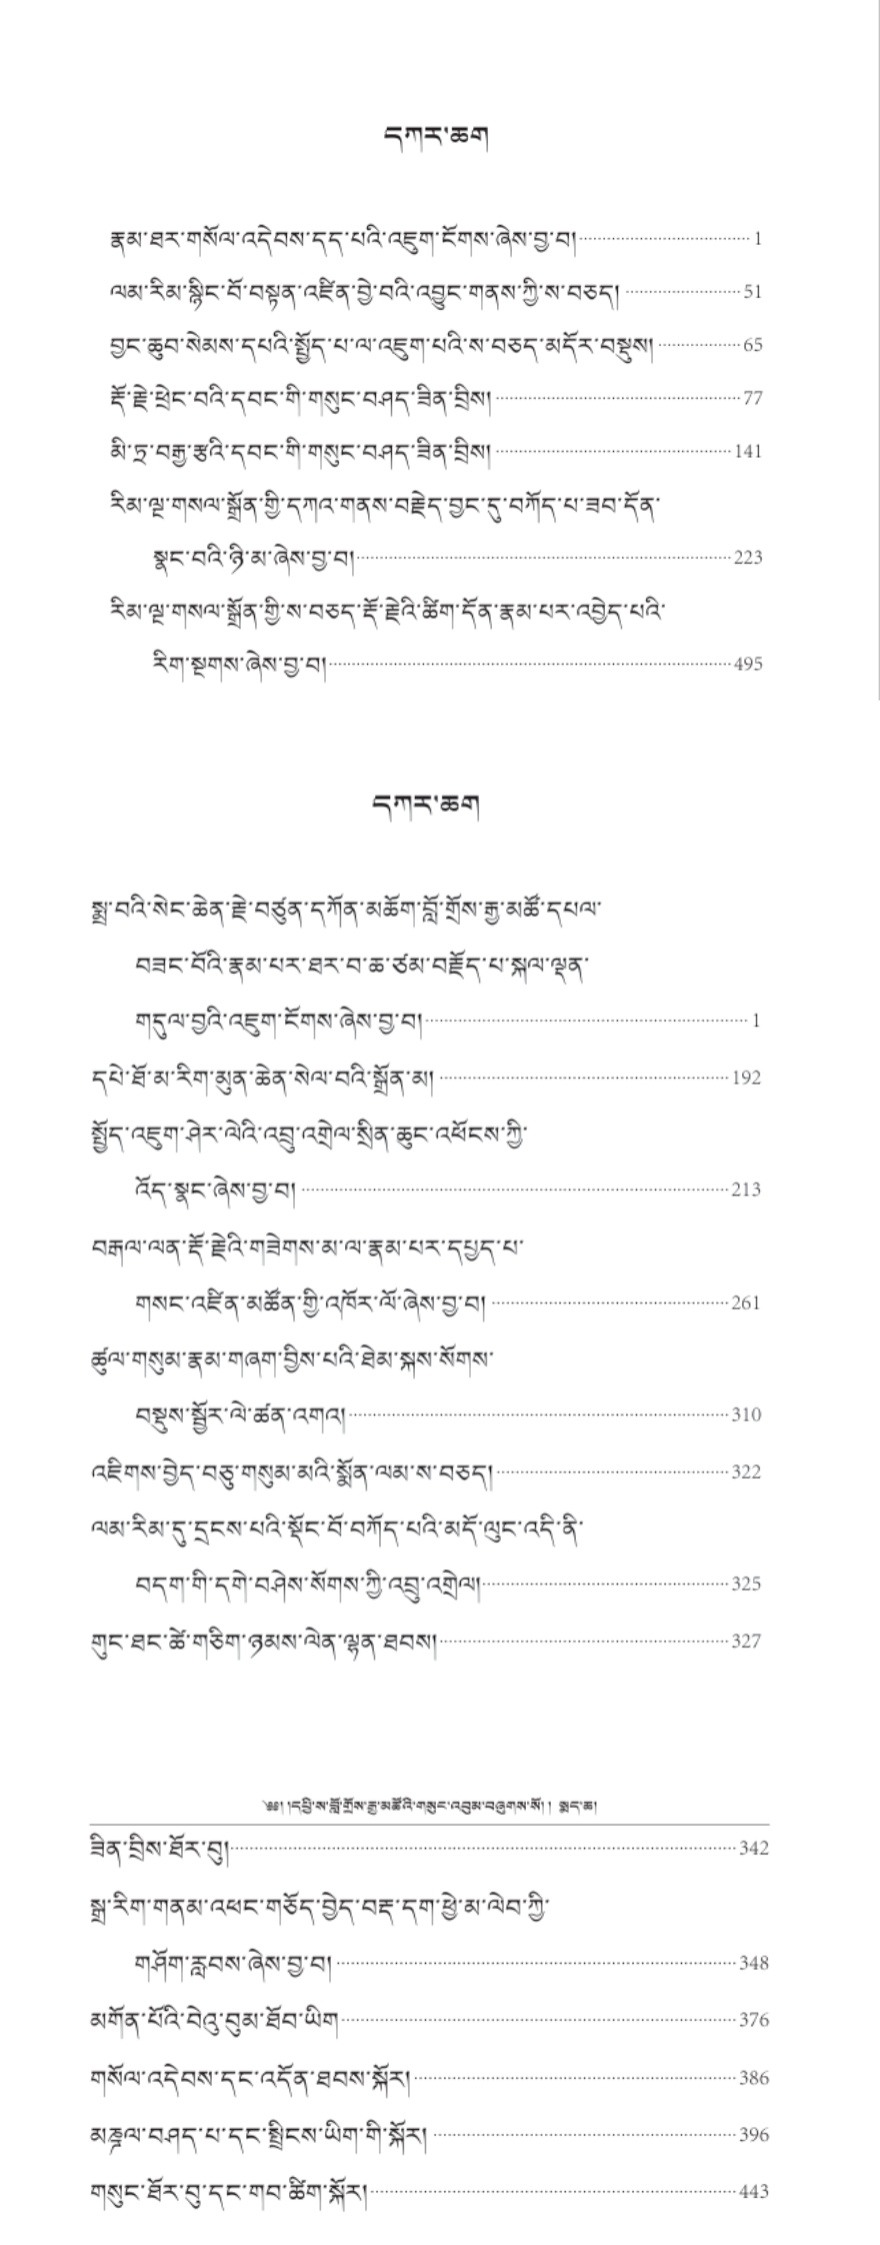 དཀར་ཆག
རྣམ་ཐར་གསོལ་འདེབས་དད་པའི་འཇུག་ངོགས་ཞེས་བྱ་བ། 1
ལམ་རིམ་སྙིང་པོ་བསྟན་འཛིན་བྱེ་བའི་འབྱུང་གནས་ཀྱི་ས་བཅད། 51
བྱང་ཆུབ་སེམས་དཔའི་སྤྱོད་པ་ལ་འཇུག་པའི་ས་བཅད་མདོར་བསྡུས། 65
རྡོ་རྗེ་ཕྲེང་བའི་དབང་གི་གསུང་བཤད་ཟིན་བྲིས། 77
མི་ཏྲ་བརྒྱ་རྩའི་དབང་གི་གསུང་བཤད་ཟིན་བྲིས། 141
རིམ་ལྔ་གསལ་སྒྲོན་གྱི་དཀའ་གནས་བརྗེད་བྱང་དུ་བཀོད་པ་ཟབ་དོན་
སྣང་བའི་ཉི་མ་ཞེས་བྱ་བ། 223
རིམ་ལྔ་གསལ་སྒྲོན་གྱི་ས་བཅད་རྡོ་རྗེའི་ཚིག་དོན་རྣམ་པར་འབྱེད་པའི་
རིག་སྔགས་ཞེས་བྱ་བ། 495
དཀར་ཆག
སྨྲ་བའི་སེང་ཆེན་རྗེ་བཙུན་དཀོན་མཆོག་བློ་གྲོས་རྒྱ་མཚོ་དཔལ་
བཟང་པོའི་རྣམ་པར་ཐར་བ་ཆ་ཙམ་བརྗོད་པ་སྐལ་ལྡན་
གདུལ་བྱའི་འཇུག་ངོགས་ཞེས་བྱ་བ། 1
དཔེ་ཐོ་མ་རིག་མུན་ཆེན་སེལ་བའི་སྒྲོན་མ། 192
སྤྱོད་འཇུག་ཤེར་ལེའི་འབྲུ་འགྲེལ་སྲིན་ཆུང་འཕོངས་ཀྱི་
འོད་སྣང་ཞེས་བྱ་བ། 213
བརྒལ་ལན་རྡོ་རྗེའི་གཟེགས་མ་ལ་རྣམ་པར་དཔྱད་པ་
གསང་འཛིན་མཚོན་གྱི་འཁོར་ལོ་ཞེས་བྱ་བ། 261
ཚུལ་གསུམ་རྣམ་གཞག་བྱིས་པའི་ཐེམ་སྐས་སོགས་
བསྡུས་སྦྱོར་ལེ་ཚན་འགའ། 310
འཇིགས་བྱེད་བཅུ་གསུམ་མའི་སྨོན་ལམ་ས་བཅད། 322
ལམ་རིམ་དུ་དྲངས་པའི་སྡོང་པོ་བཀོད་པའི་མདོ་ལུང་འདི་ནི་
བདག་གི་དགེ་བཤེས་སོགས་ཀྱི་འབྲུ་འགྲེལ། 325
གུང་ཐང་ཚེ་གཅིག་ཉམས་ལེན་ལྷན་ཐབས། 327
༄༅། །དཔྱི་ས་བློ་གྲོས་རྒྱ་མཚོའི་གསུང་འབུམ་བཞུགས་སོ། ། སྨད་ཆ།
ཟིན་བྲིས་ཐོར་བུ། 342
སྒྲ་རིག་གནམ་འཕང་གཅོད་བྱེད་བརྡ་དག་ཕྱེ་མ་ལེབ་ཀྱི་
གཤོག་རླབས་ཞེས་བྱ་བ། 348
མགོན་པོའི་བེའུ་བུམ་ཐོབ་ཡིག 376
གསོལ་འདེབས་དང་འདོན་ཐབས་སྐོར། 386
མཎྜལ་བཤད་པ་དང་སྤྲིངས་ཡིག་གི་སྐོར། 396
གསུང་ཐོར་བུ་དང་གབ་ཚིག་སྐོར། 443